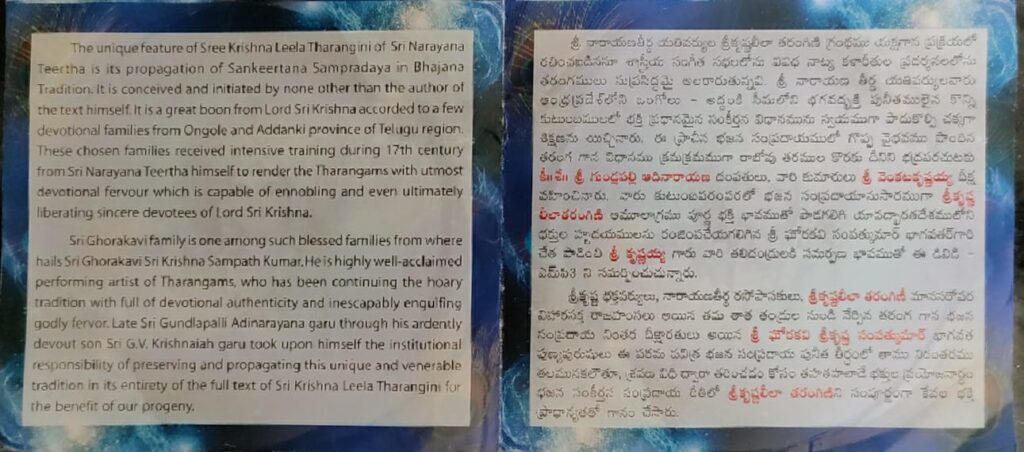 The unique feature of Sree Krishna Leela Tharangini of Sri Narayana
Teertha is its propagation of Sankeertana Sampradaya in Bhajana
Tradition. It is conceived and initiated by none other than the author of
the text himself. It is a great boon from Lord Sri Krishna accorded to a few
devotional families from Ongole and Addanki province of Telugu region.
These chosen families received intensive training during 17th century
from Sri Narayana Teertha himself to render the Tharangams with utmost
devotional fervour which is capable of ennobling and even ultimately
liberating sincere devotees of Lord Sri Krishna.
Sri Ghorakavi family is one among such blessed families from where
hails Sri Ghorakavi Sri Krishna Sampath Kumar. He is highly well-acclaimed
performing artist of Tharangams, who has been continuing the hoary
tradition with full of devotional authenticity and inescapably engulfing
godly fervor. Late Sri Gundlapalli Adinarayana garu through his ardently
devout son Sri G.V. Krishnaiah garu took upon himself the institutional
responsibility of preserving and propagating this unique and venerable
tradition in its entirety of the full text of Sri Krishna Leela Tharangini for
the benefit of our progeny.
శ్రీ నారాయణతీర్థ యతివర్యుల శ్రీకృష్ణలీలా తరంగిణి గ్రంథము యక్షగాన ప్రక్రియలో
రచించబడినను శాస్త్రీయ సంగీత సభలలోను వివిధ నాట్య కళారీతుల ప్రదర్శనలలోను
తరంగములు సుప్రసిద్ధమై అలరారుతున్నవి. శ్రీ నారాయణ తీర్థ యతివర్యులవారు
ఆంధ్రప్రదేశ్‌లోని ఒంగోలు - అద్దంకి సీమలోని భగవద్భక్తి పునీతములైన కొన్ని
కుటుంబములలో భక్తి ప్రధానమైన సంకీర్తన విధానమును స్వయముగా పాదుకొల్పి చక్కగా
శిక్షణను యిచ్చినారు. ఈ ప్రాచీన భజన సంప్రదాయములో గొప్ప వైభవము పొందిన
తరంగ గాన విధానము క్రమక్రమముగా రాబోవు తరముల కొరకు దీనిని భద్రపరచుటకు
కీ॥శే॥ శ్రీ గుండ్లపల్లి ఆదినారాయణ దంపతులు, వారి కుమారులు శ్రీ వెంకటకృష్ణయ్య దీక్ష
వహించినారు. వారు కుటుంబపరంపరలో భజన సంప్రదాయానుసారముగా శ్రీకృష్ణ
లీలాతరంగిణి ఆమూలాగ్రము పూర్ణ భక్తి భావముతో పాడగలిగి యావద్భారతదేశములోని
భక్తుల హృదయములను రంజింపచేయగలిగిన శ్రీ ఘోరకవి సంపత్కుమార్ భాగవతర్‌గారి
చేత పాడించి శ్రీ కృష్ణయ్య గారు వారి తలిదండ్రులకి సమర్పణ భావముతో ఈ డివిడి -
ఎమ్‌పి3 ని సమర్పించుచున్నారు.
శ్రీకృష్ణ భక్తవర్యులు, నారాయణతీర్థ రసోపాసకులు, శ్రీకృష్ణలీలా తరంగిణీ మానసరోవర
విహారసక్త రాజహంసలు అయిన తమ తాత తండ్రుల నుండి నేర్చిన తరంగ గాన భజన
సంప్రదాయ నిరతర దీక్షాపరతులు అయిన శ్రీ ఘోరకవి శ్రీకృష్ణ సంపత్కుమార్ భాగవత
పుణ్యపురుషులు ఈ పరమ పవిత్ర భజన సంప్రదాయ పునీత తీర్థంలో తాము నిరంతరము
తలమునకలౌతూ, శ్రవణ విధి ద్వారా తరించడం కోసం తహతహలాడే భక్తుల ప్రయోజనార్థం
భజన సంకీర్తన సంప్రదాయ రీతిలో శ్రీకృష్ణలీలా తరంగిణిని సంపూర్ణంగా కేవల భక్తి
ప్రాధాన్యతతో గానం చేసారు.